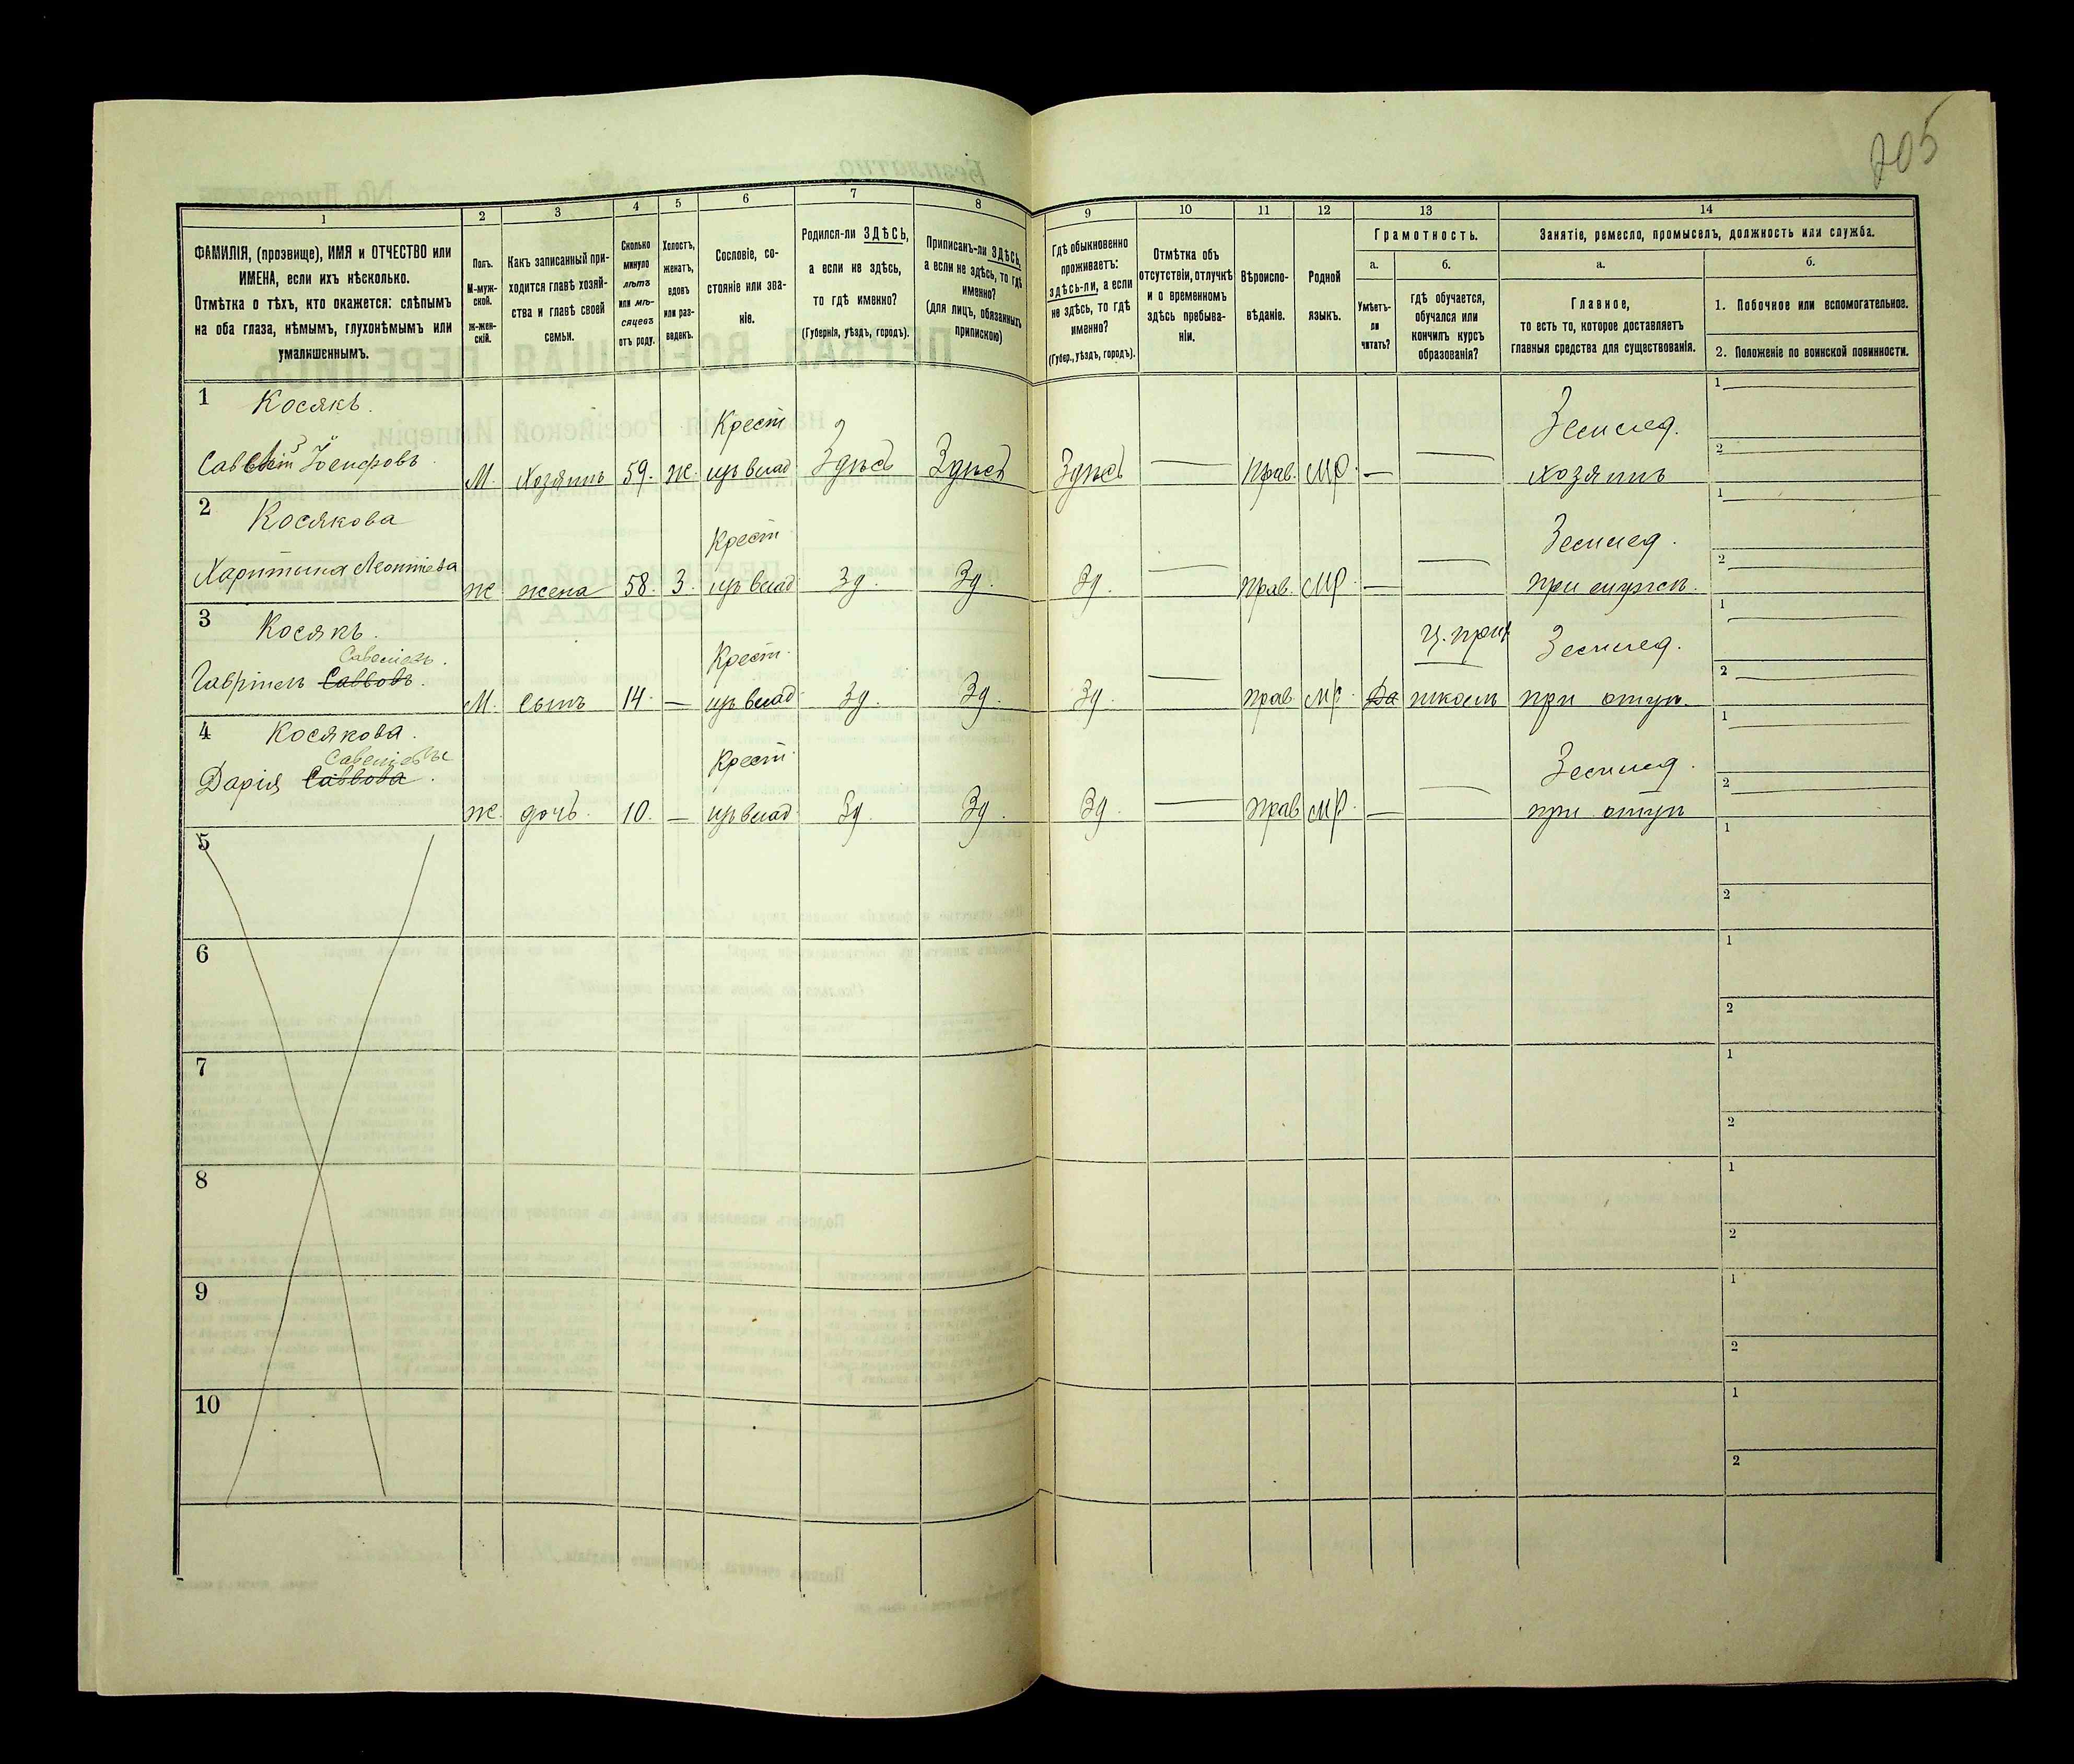 205
1
2
3
4
5
6
7
8
9
10
11
12
13
14
ФАМИЛІЯ, (прозвище), ИМЯ и ОТЧЕСТВО или
ИМЕНА, если ихъ нѣсколько.
Отмѣтка о тѣхъ, кто окажется: слѣпымъ
на оба глаза, нѣмымъ, глухонѣмымъ или
умалишеннымъ.
Полъ.
М-муж-
ской.
Ж-жен-
скій.
Какъ записанный при-
ходится главѣ хозяй-
ства и главѣ своей
семьи.
Сколько
минуло
лѣтъ
или мѣ-
сяцевъ
отъ роду.
Холостъ,
женатъ,
вдовъ
или раз-
веденъ.
Сословіе, со-
стояніе или зва-
ніе.
Родился-ли ЗДѢСЬ,
а если не здѣсь,
то гдѣ именно?
(Губернія, уѣздъ, городъ).
Приписанъ-ли ЗДѢСЬ,
а если не здѣсь, то гдѣ
именно?
(для лицъ, обязанныхъ
припискою)
Гдѣ обыкновенно
проживаетъ:
здѣсь-ли, а если
не здѣсь, то гдѣ
именно?
(Губер., уѣздъ, городъ).
Отмѣтка объ
отсутствіи, отлучкѣ
и о временномъ
здѣсь пребыва-
ніи.
Вѣроиспо-
вѣданіе.
Родной
языкъ.
Грамотность.
а.
Умѣетъ-
ли
читать?
б.
гдѣ обучается,
обучался или
кончилъ курсъ
образованія?
Занятіе, ремесло, промыселъ, должность или служба.
а.
Главное,
то есть то, которое доставляетъ
главныя средства для существованія.
б.
1. Побочное или вспомогательное.
2. Положеніе по воинской повинности.
1 Косякъ.
М. Хозяинъ 59. ж. Крест
изъ влад Здѣсь Здѣсь Здѣсь — прав. мр. — — Землед.
хозяинъ
2 Косякова
Харитина Леонтіева
ж жена 58. З. Крест
изъ влад Зд. Зд. Зд. — прав. мр — — Землед.
при мужѣ.
3 Косякъ.
Гавріилъ Саввовъ.
М. сынъ 14. — Крест.
изъ влад Зд. Зд. Зд. — прав мр. Да
школѣ
Землед.
при отцѣ.
4 Косякова.
Дарія Саввова.
ж. дочь. 10. — Крест
изъ влад Зд. Зд. Зд. — прав мр. — — Землед.
при отцѣ
5
6
7
8
9
10